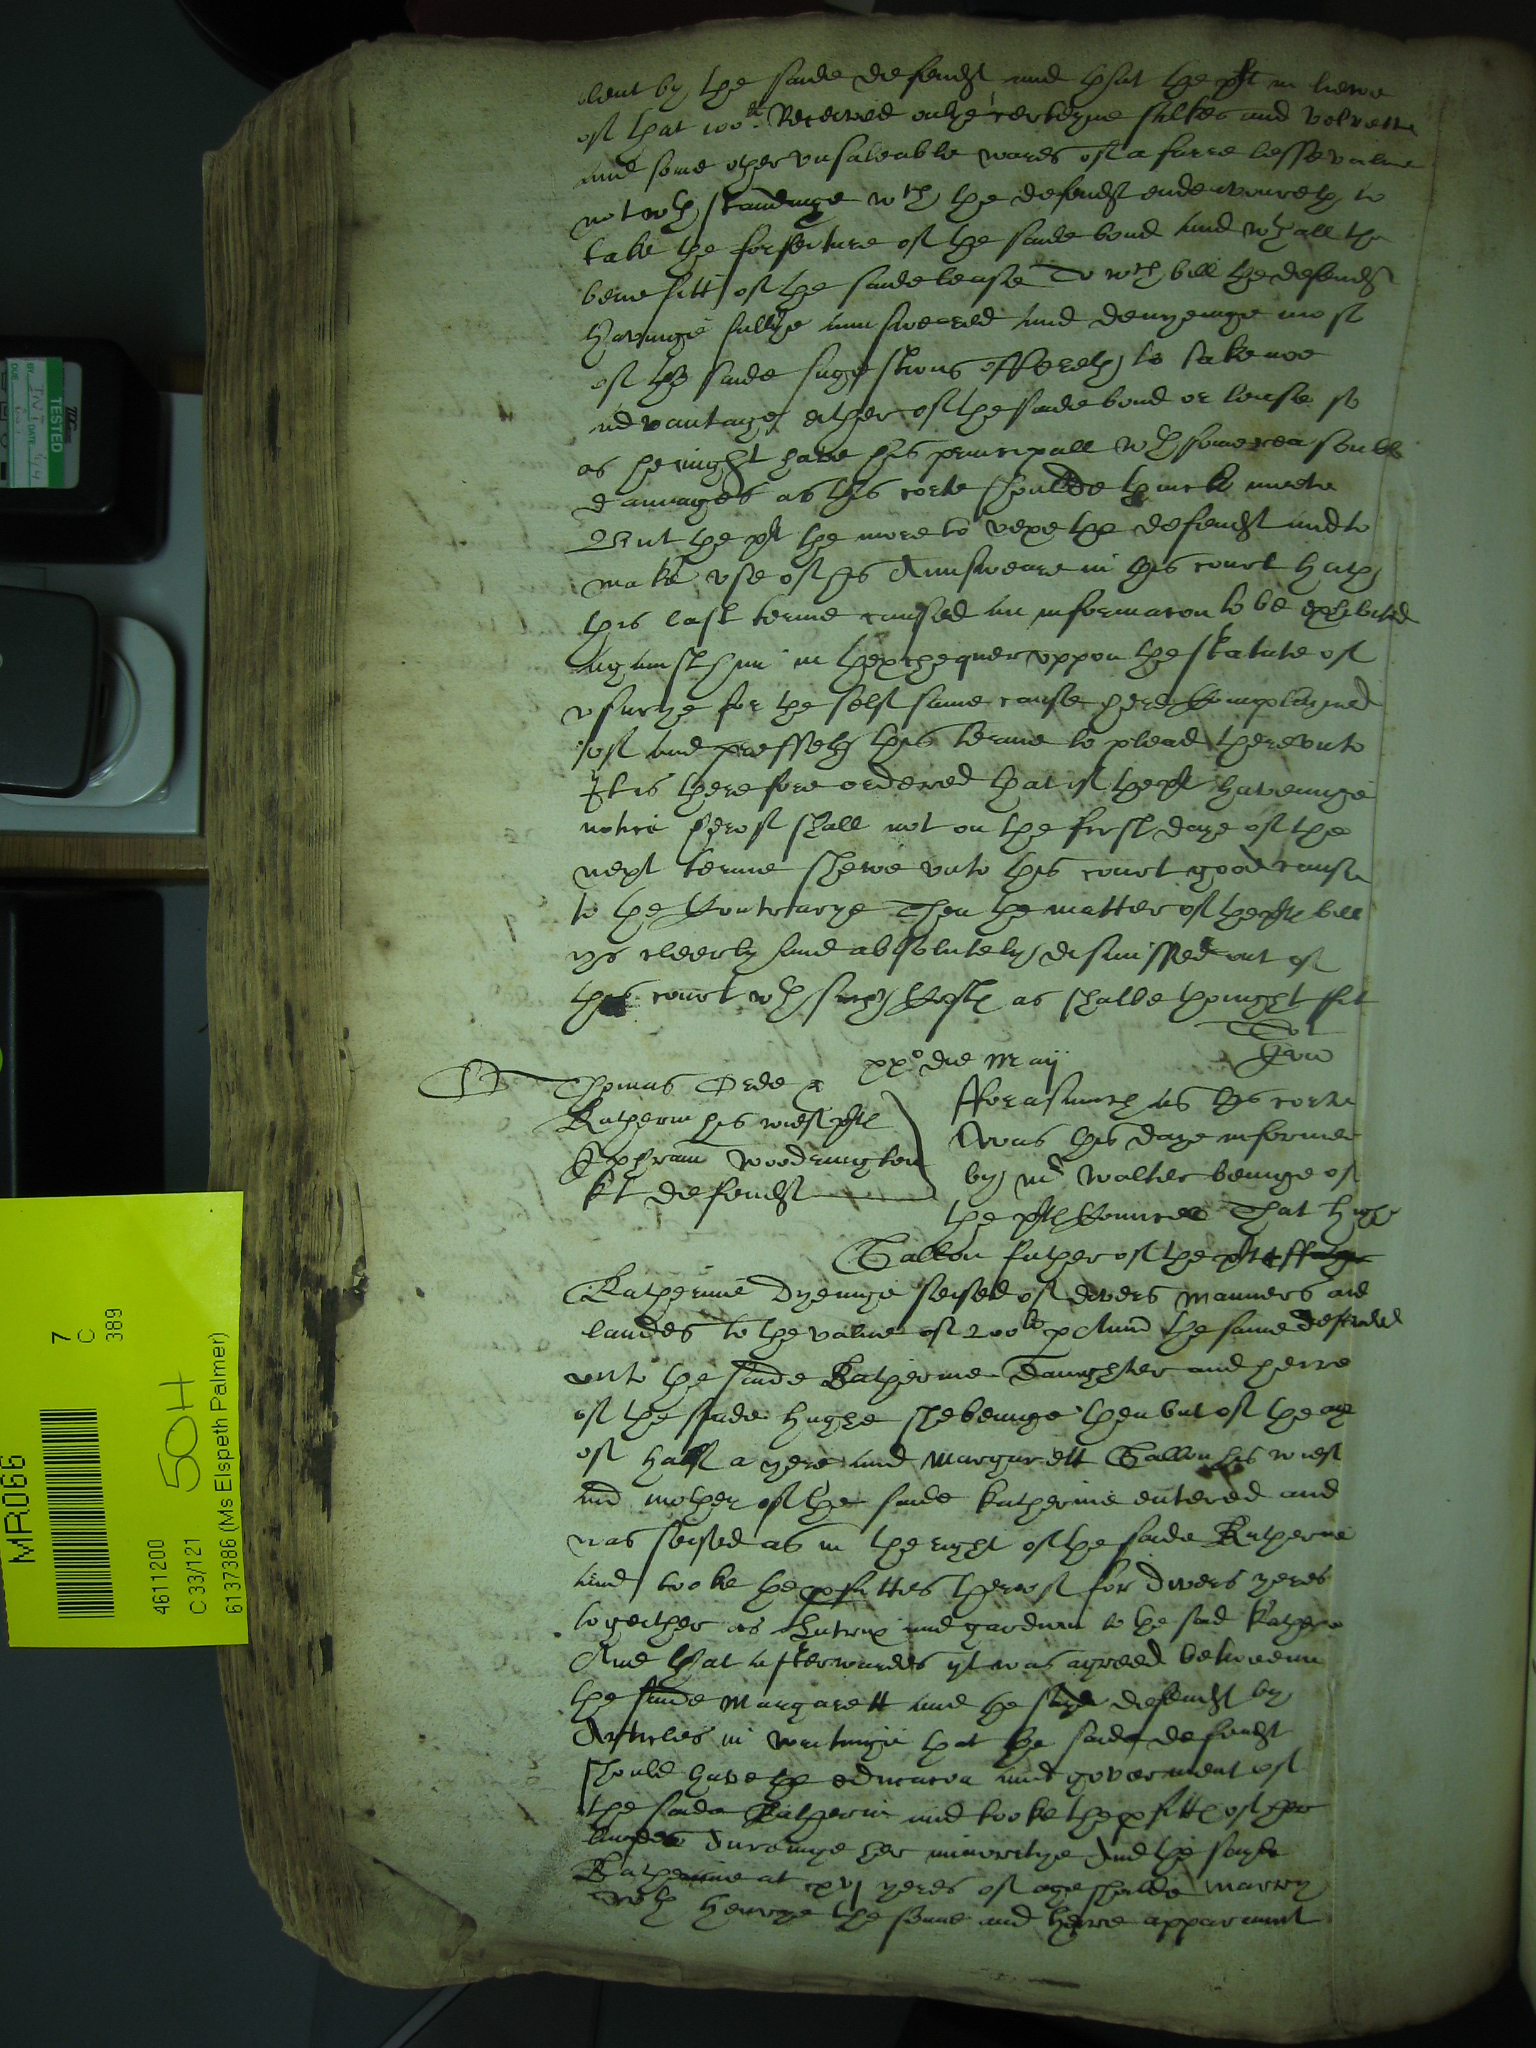 lent by the saide defendt and that the plt in liewe
of that 100li Received onlye certeyne silkes and velvette
and some other unsaleable wares of a farre lesse value
notwthstandinge wch the defendt endevoureth to
take the forfeiture of the saide bond and wthall the
benefitt of the saide lease To wch bill the defendt
havinge fullye aunsweared and denyenge most
of the saide sugestions offereth to take noe
advantage either of the saide bond or lease so
as he might have his principall wth some reasonable
damages as this corte shoulde thinck meete
But the plt the more to vexe the defendt and to
make use of his Aunsweare in this court hath
this last terme caused an informacon to be exhibited
against him in thexchequer uppon the statute of
usurye for the self same cause here complayned
of and presseth this terme to plead thereunto
It is therefore ordered that if the plt haveinge
notice hereof shall not on the first daye of the
next terme shewe unto this court good cause
to the contrarye Then the matter of the plts bill
ys cleerly and absolutely dismissed out of
this court wth such costs as shalbe thought fit
xxo die Maij
Thomas Orde &
Katherin his wief plts
Ephram Woodrington
kt defendt
Forasmuch as this corte
was this daye informed
by mr Walter beinge of
the plts councell That Hughe
Gallon father of the plt
Katherine dyenge seised of divers mannors and
landes to the value of 200li p Ann the same descended
unto the saide Katherine daughter and heire
of the saide Hughe she beinge then but of the age
of half a yere and Margarett Gallon his wief
and mother of the saide Katherine entered and
was seised as in the right of the saide Katherine
and tooke the pfittes thereof for divers yeres
together as Tutrix and gardian to the said Katherin
And that afterwardes yt was agreed betweene
the saide Margarett and the saide defendt by
Articles in writinge that the saide defendt
should have the educacon and goverment of
the saide Katherin and tooke the pfitts of her
landes duringe her minoritye And the saide
Katherine at xvj yeres of age shoulde marry
wth Henrye the sonne and heire apparaunt
TESTED
BY
DATE
DUE
MR066
7
C
389
4611200
50H
C 33/121
6137386 (Ms Elspeth Palmer)